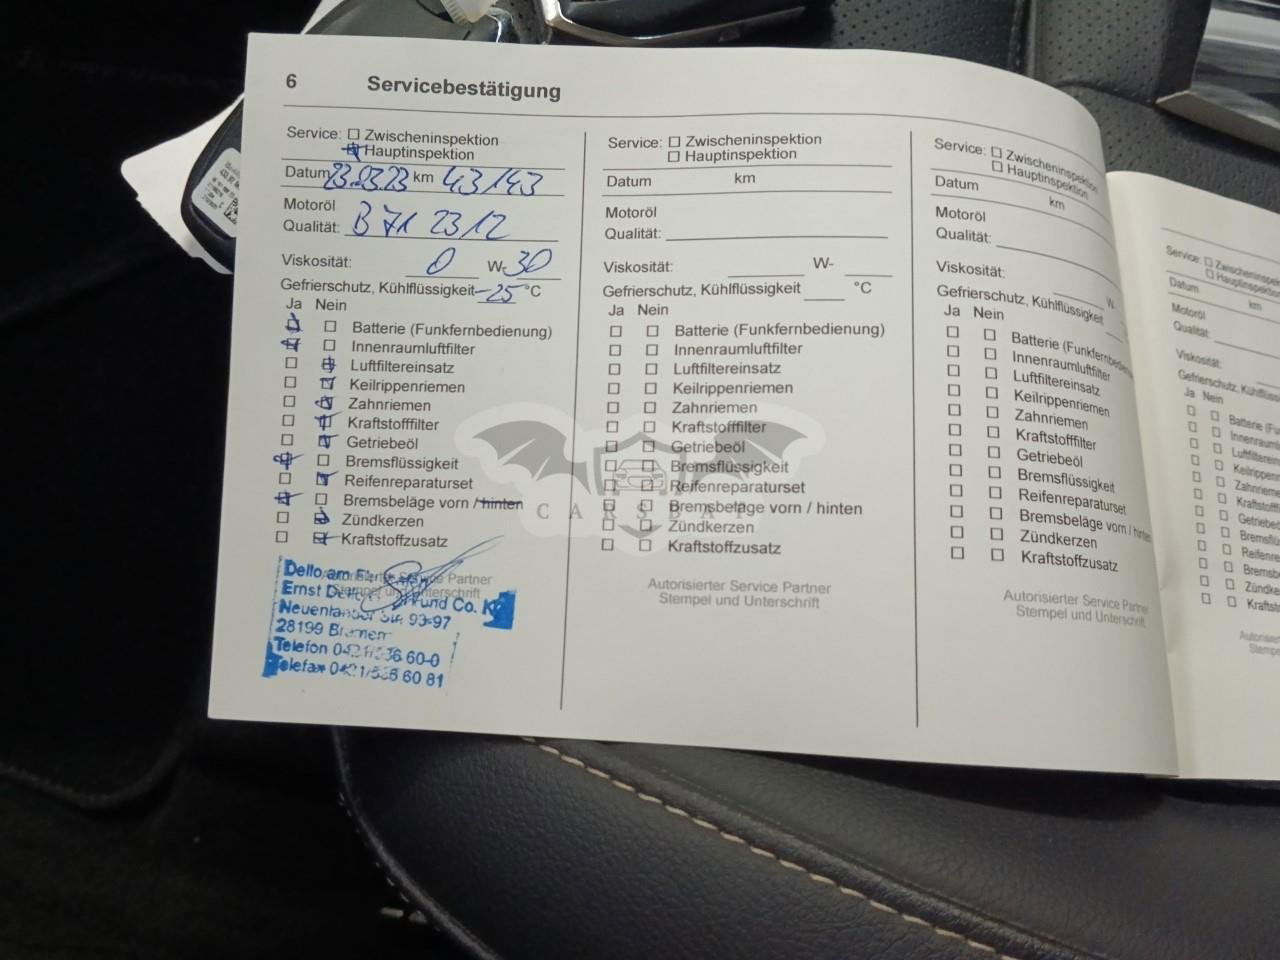 6 Servicebestätigung
Service: Zwischeninspektion
Hauptinspektion
Datum 23.03.23 km 43143
Motoröl
Qualität: B 71 2312
Viskosität: 0 W-30
Gefrierschutz, Kühlflüssigkeit -25 °C
Ja Nein
Batterie (Funkfernbedienung)
Innenraumluftfilter
Luftfiltereinsatz
Keilrippenriemen
Zahnriemen
Kraftstofffilter
Getriebeöl
Bremsflüssigkeit
Reifenreparaturset
Bremsbeläge vorn / hinten
Zündkerzen
Kraftstoffzusatz
Autorisierter Service Partner
Stempel und Unterschrift
Dello am
Ernst und Co.
Neuenlander Str. 93-97
28199 Bremen
Telefon 0421/536 60-0
Telefax 0421/536 60 81
Service: Zwischeninspektion
Hauptinspektion
Datum km
Motoröl
Qualität:
Viskosität: W-
Gefrierschutz, Kühlflüssigkeit °C
Ja Nein
Batterie (Funkfernbedienung)
Innenraumluftfilter
Luftfiltereinsatz
Keilrippenriemen
Zahnriemen
Kraftstofffilter
Getriebeöl
Bremsflüssigkeit
Reifenreparaturset
Bremsbeläge vorn / hinten
Zündkerzen
Kraftstoffzusatz
Autorisierter Service Partner
Stempel und Unterschrift
CARSBAT
Service: Zwischeninspektion
Hauptinspektion
Datum km
Motoröl
Qualität:
Viskosität: W-
Gefrierschutz, Kühlflüssigkeit
Ja Nein
Batterie (Funkfernbedie
Innenraumluftfilter
Luftfiltereinsatz
Keilrippenriemen
Zahnriemen
Kraftstofffilter
Getriebeöl
Bremsflüssigkeit
Reifenreparaturset
Bremsbeläge vorn / hint
Zündkerzen
Kraftstoffzusatz
Autorisierter Service Partner
Stempel und Unterschrift
Service: Zwischeninspek
Hauptinspekt
Datum km
Motoröl
Qualität:
Viskosität:
Gefrierschutz, Kühlflüss
Ja Nein
Batterie (Fu
Innenraumlu
Luftfilterein
Keilrippen
Zahnriem
Kraftstof
Getriebe
Bremsfl
Reifenre
Bremsb
Zündke
Kraftst
Autoris
Stempe